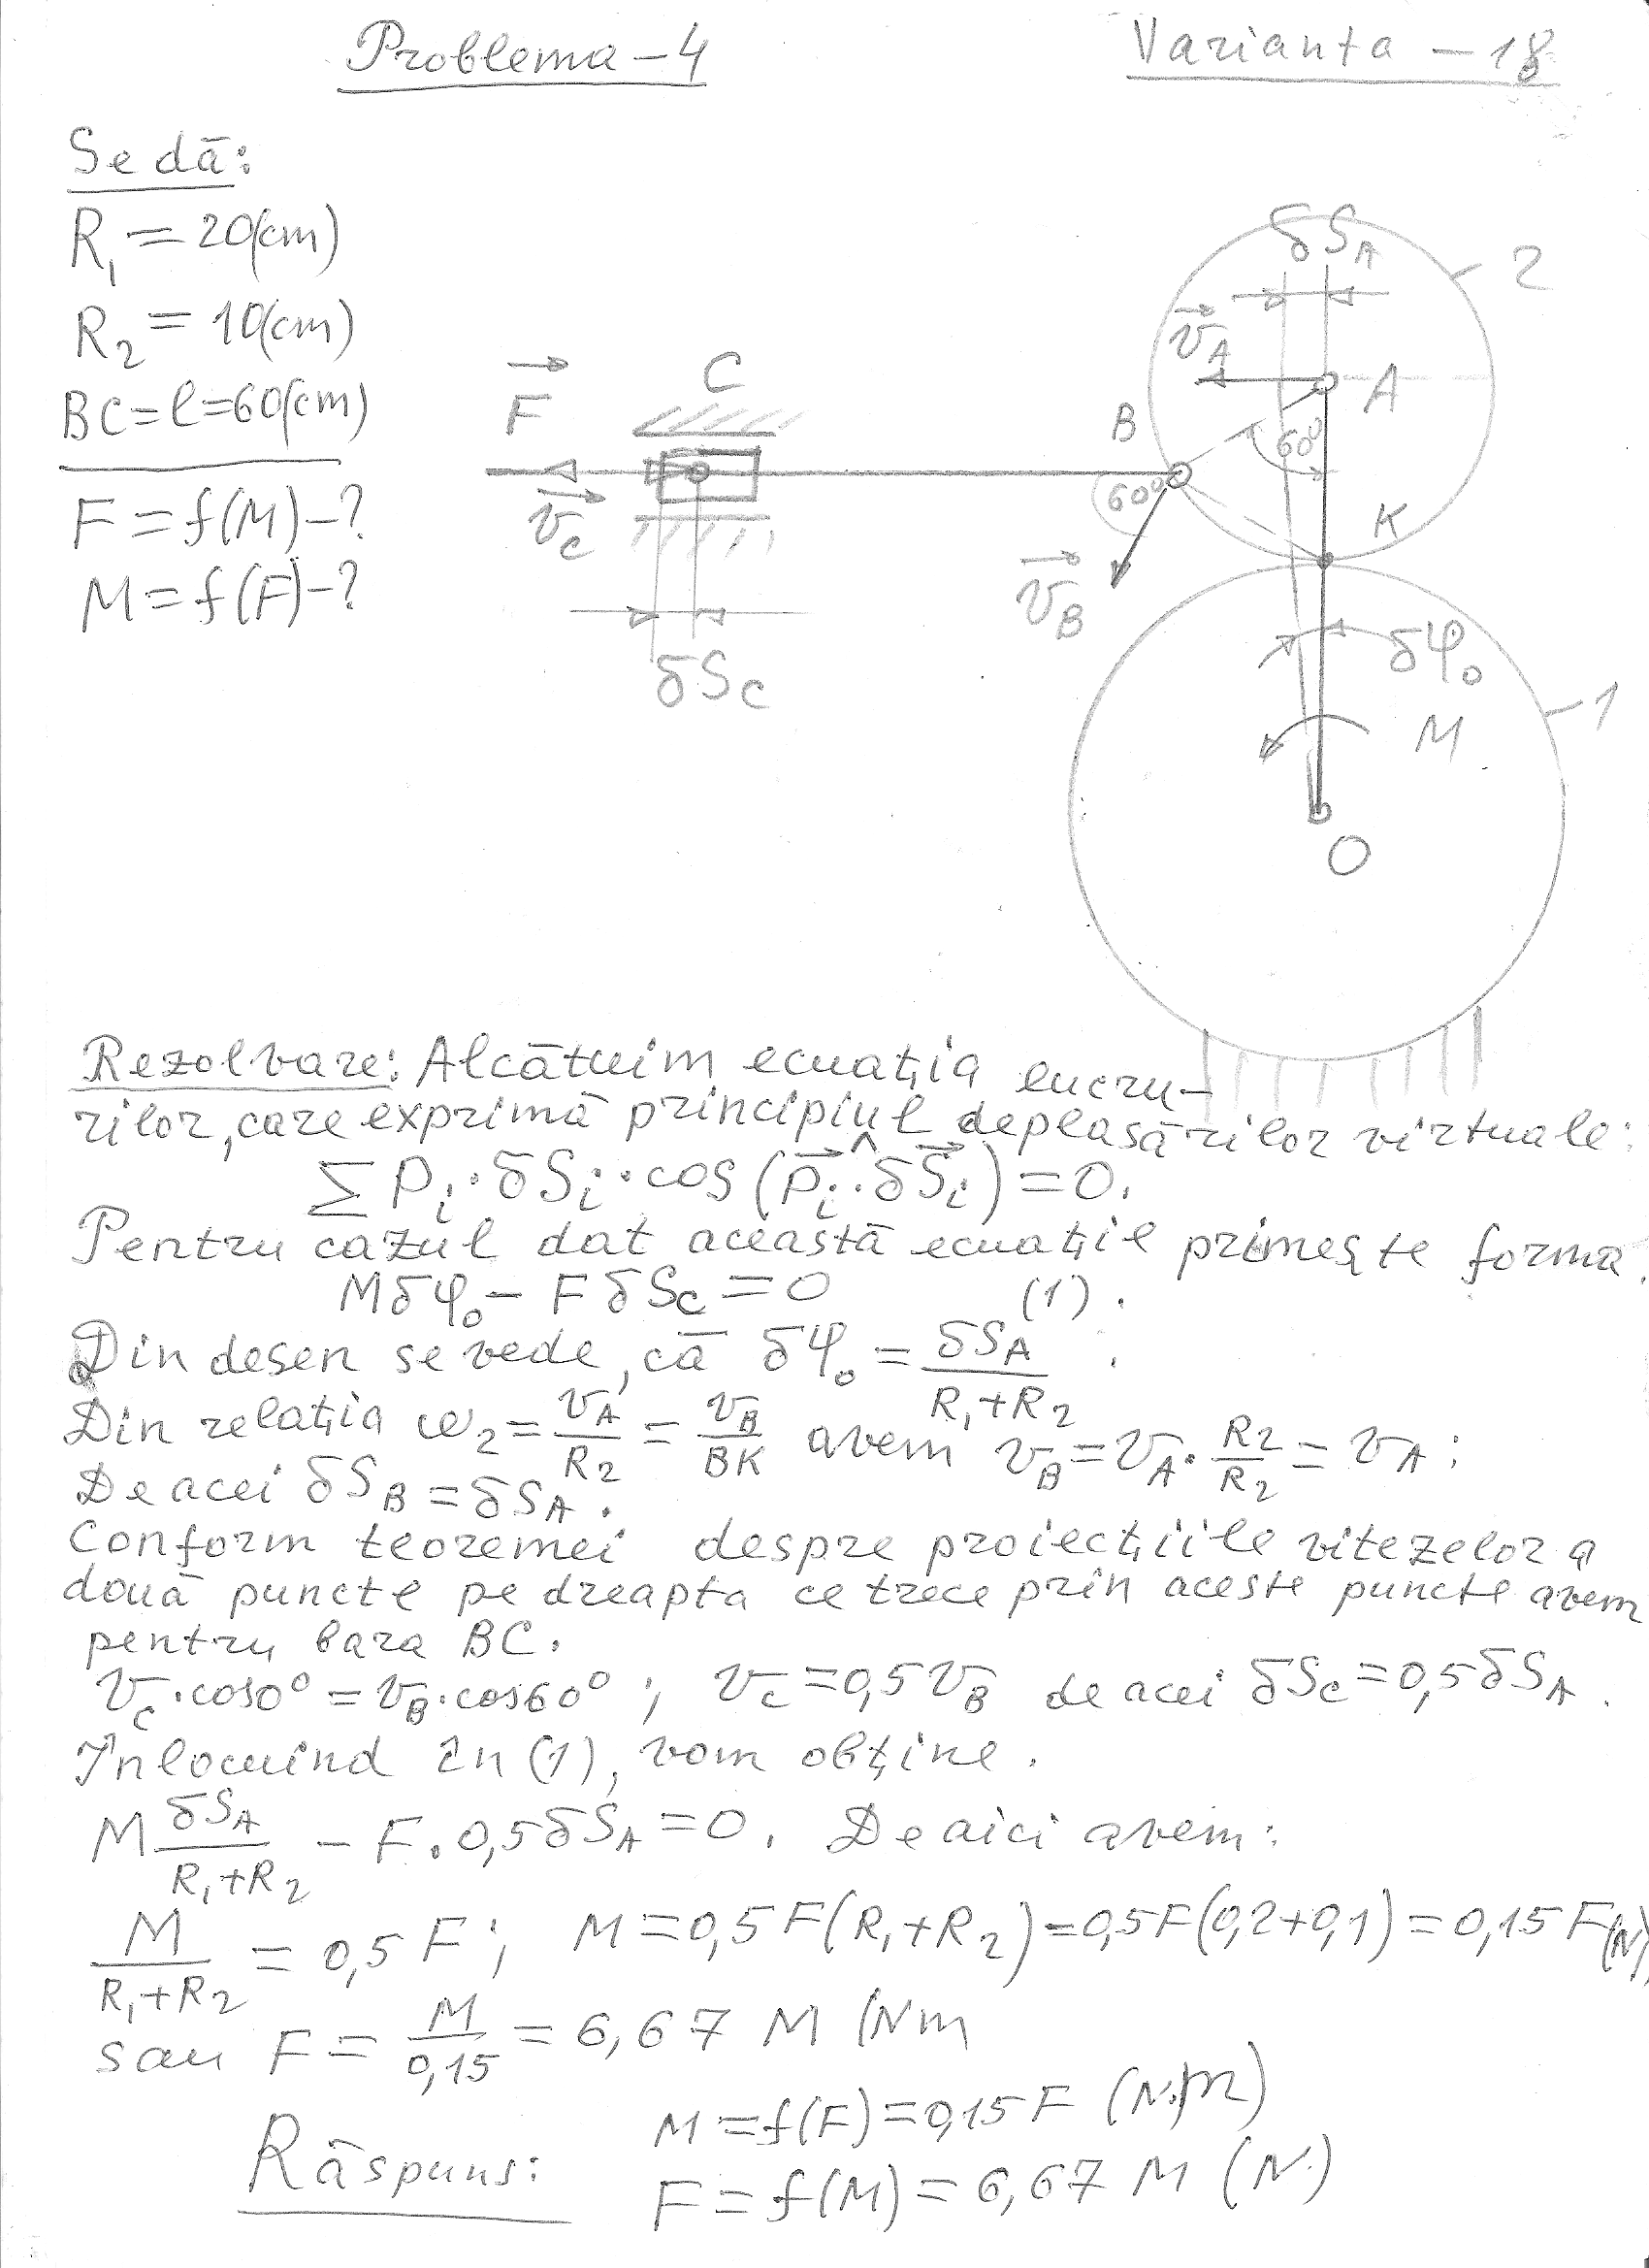 Problema - 4
Varianta - 18
Se dă:
R₁ = 20(cm)
R₂ = 10(cm)
BC = l = 60(cm)
F = f(M) - ?
M = f(F) - ?
δS_A
2
v_A
A
C
F
B
60°
60°
v_C
K
v_B
δS_C
δφ₀
1
M
O
Rezolvare: Alcătuim ecuația lucru-
rilor, care exprimă principiul deplasărilor virtuale:
∑ Pᵢ · δSᵢ · cos (Pᵢ ^ · δSᵢ) = 0.
Pentru cazul dat această ecuație primește forma.
Mδφ₀ - FδS_C = 0 (1).
Din desen se vede, că δφ₀ = δS_A / (R₁+R₂) .
Din relația ω₂ = v_A / R₂ = v_B / BK avem v_B = v_A · R₂ / R₂ = v_A ;
De acei δS_B = δS_A .
Conform teoremei despre proiecțiile vitezelor a
două puncte pe dreapta ce trece prin aceste puncte avem
pentru bara BC.
v_C · cos0° = v_B · cos60° ; v_C = 0,5 v_B de acei δS_C = 0,5 δS_A .
Înlocuind în (1), vom obține .
M δS_A / (R₁+R₂) - F . 0,5 δS_A = 0 . De aici avem:
M / (R₁+R₂) = 0,5 F ; M = 0,5 F(R₁+R₂) = 0,5F(0,2+0,1) = 0,15 F(N)
sau F = M / 0,15 = 6,67 M (Nm
M = f(F) = 0,15 F (N·m)
Răspuns:
F = f(M) = 6,67 M (N.)